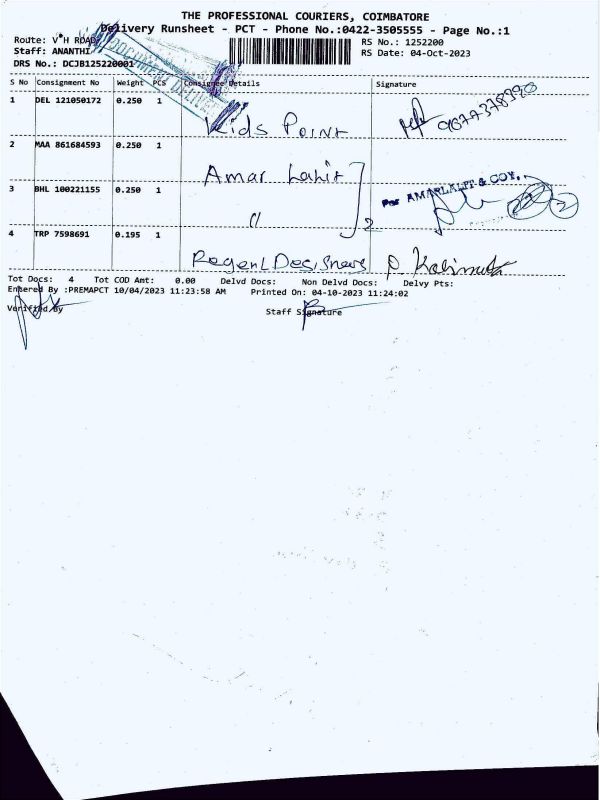 THE PROFESSIONAL COURIERS, COIMBATORE
Delivery Runsheet - PCT - Phone No.:0422-3505555 - Page No.:1
Route: V*H ROAD RS No.: 1252200
Staff: ANANTHI RS Date: 04-Oct-2023
DRS No.: DCJB125220001
S No Consignment No Weight PCS Consignee Details Signature
1 DEL 121050172 0.250 1 Kids Point
2 MAA 861684593 0.250 1 Amar
3 BHL 100221155 0.250 1 " 2 For AMARLAL & COY.
4 TRP 7598691 0.195 1
Tot Docs: 4 Tot COD Amt: 0.00 Delvd Docs: Non Delvd Docs: Delvy Pts:
Entered By :PREMAPCT 10/04/2023 11:23:58 AM Printed On: 04-10-2023 11:24:02
Verified By Staff Signature